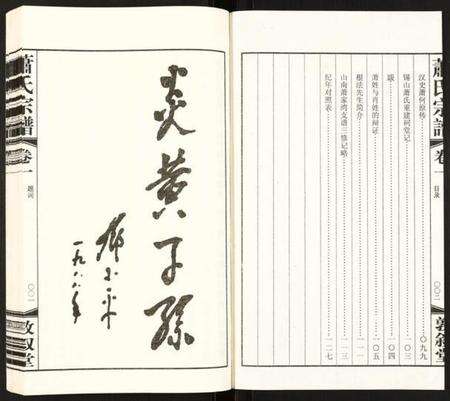 蕭氏宗譜
卷一
目录
〇〇二
敦叙堂
汉史萧何原传 〇九九
锡山萧氏重建祠堂记 一〇三
跋 一〇四
萧姓与肖姓的辩证 一〇五
根法先生简介 一一一
山南萧家湾支谱三修记略 一一三
纪年对照表 一二七
炎黄子孫
邓小平
一九八八年
蕭氏宗譜
卷一
题词
敦叙堂